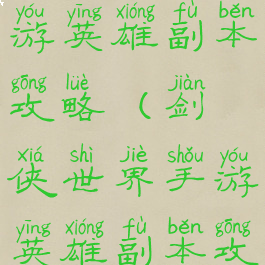 yóu yīng xióng fù běn
游英雄副本
gōng lüè jiàn
攻略（剑
xiá shì jiè shǒu yóu
侠世界手游
yīng xióng fù běn gōng
英雄副本攻